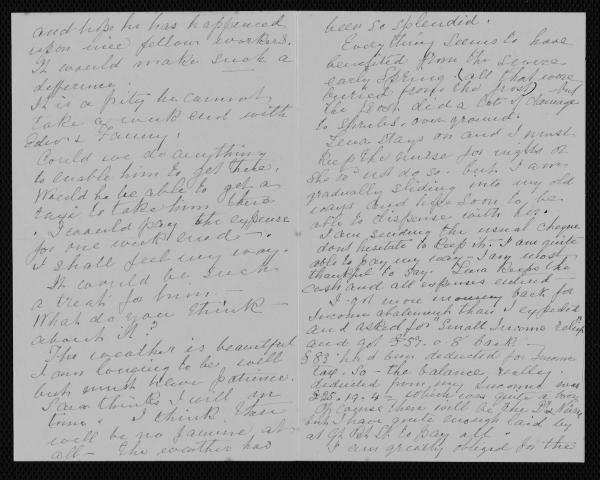 and hope he has happened
upon nice fellow workers.
It would make such a
difference
It is a pity he cannot
take a week end with
Edw & Fanny.
Could we do anything
to enable him to get there,
Would he be able to get a
taxi to take him there
. I would pay the expense
for one week end -.
I shall feel my way.
It would be such
a treat for him. -
What do you think -
about it?
The weather is beautiful
I am longing to be well
but must have patience.
thinks I will in
time". I think there
will be no famine at
all - The weather has
been so splendid.
Everything seems to have
benefited from the severe
early Spring (all that were
buried from the frost) but
the did a lot of damage
to shrubs over ground.
Lena stays on and I must
keep the nurse for nights if
she do not do so. but I am
gradually sliding into my old
ways and hope soon to be
able to dispense with her.
I am sending the usual cheque
dont hesitate to keep it. I am quite
able to pay my way I am most
thankful to say. Lena keeps the
cash and all expenses entered -
I got more money back for
Income abatement than I expected
and asked for "Small Income relief"
and got £57. 0. 8 back -
£83 had been deducted for Income
tax. So - the balance really
deducted from my Income was
£25. 19. 4 - which was quite a
Of course there will be the
but I have quite enough laid by
at to pay all "
I am greatly obliged for the